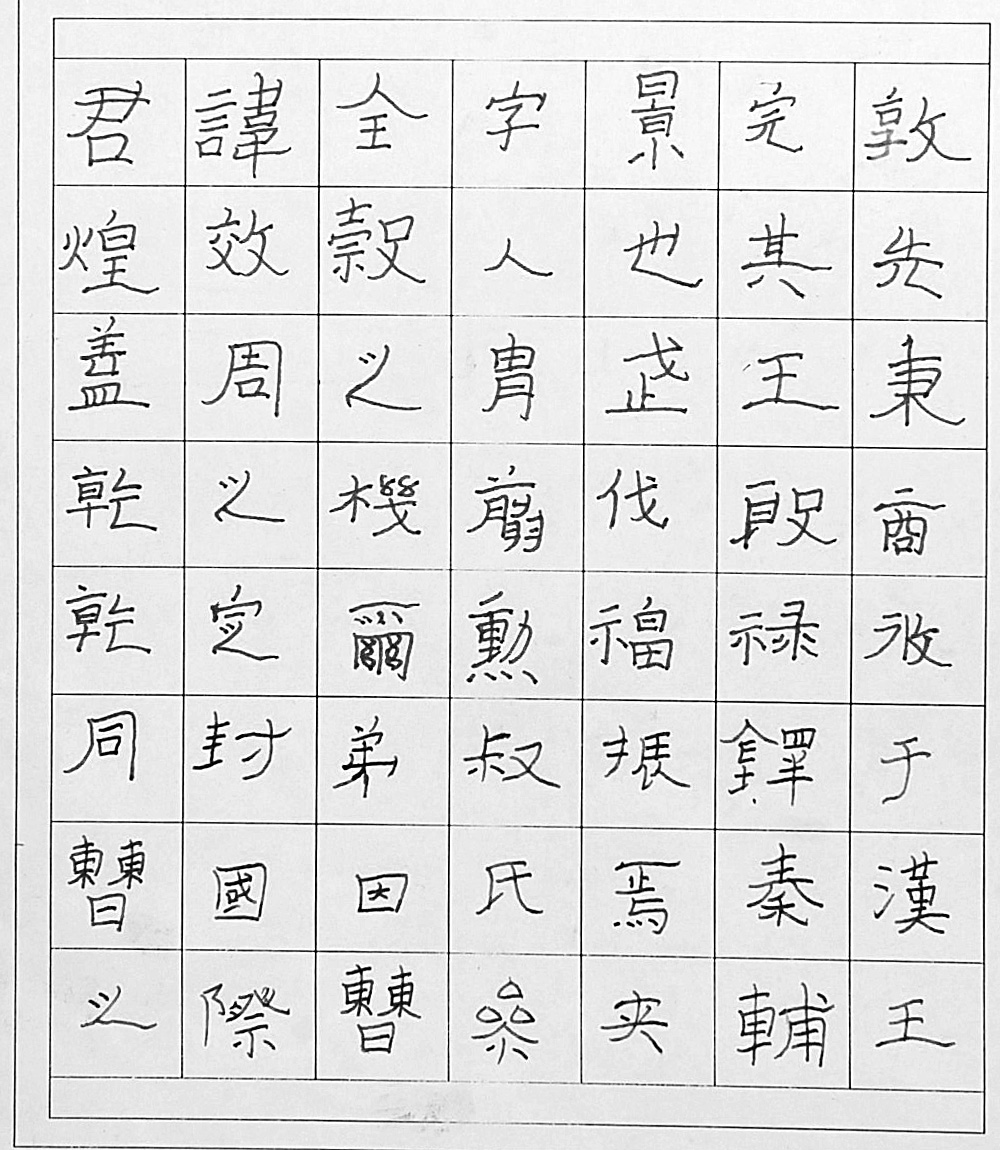 君諱全字景完敦
煌效穀人也其先
蓋周之冑武王秉
乾之機翦伐殷商
乾定爾勳福禄攸
同封弟叔振鐸于
曹國因氏焉秦漢
之際曹參夾輔王